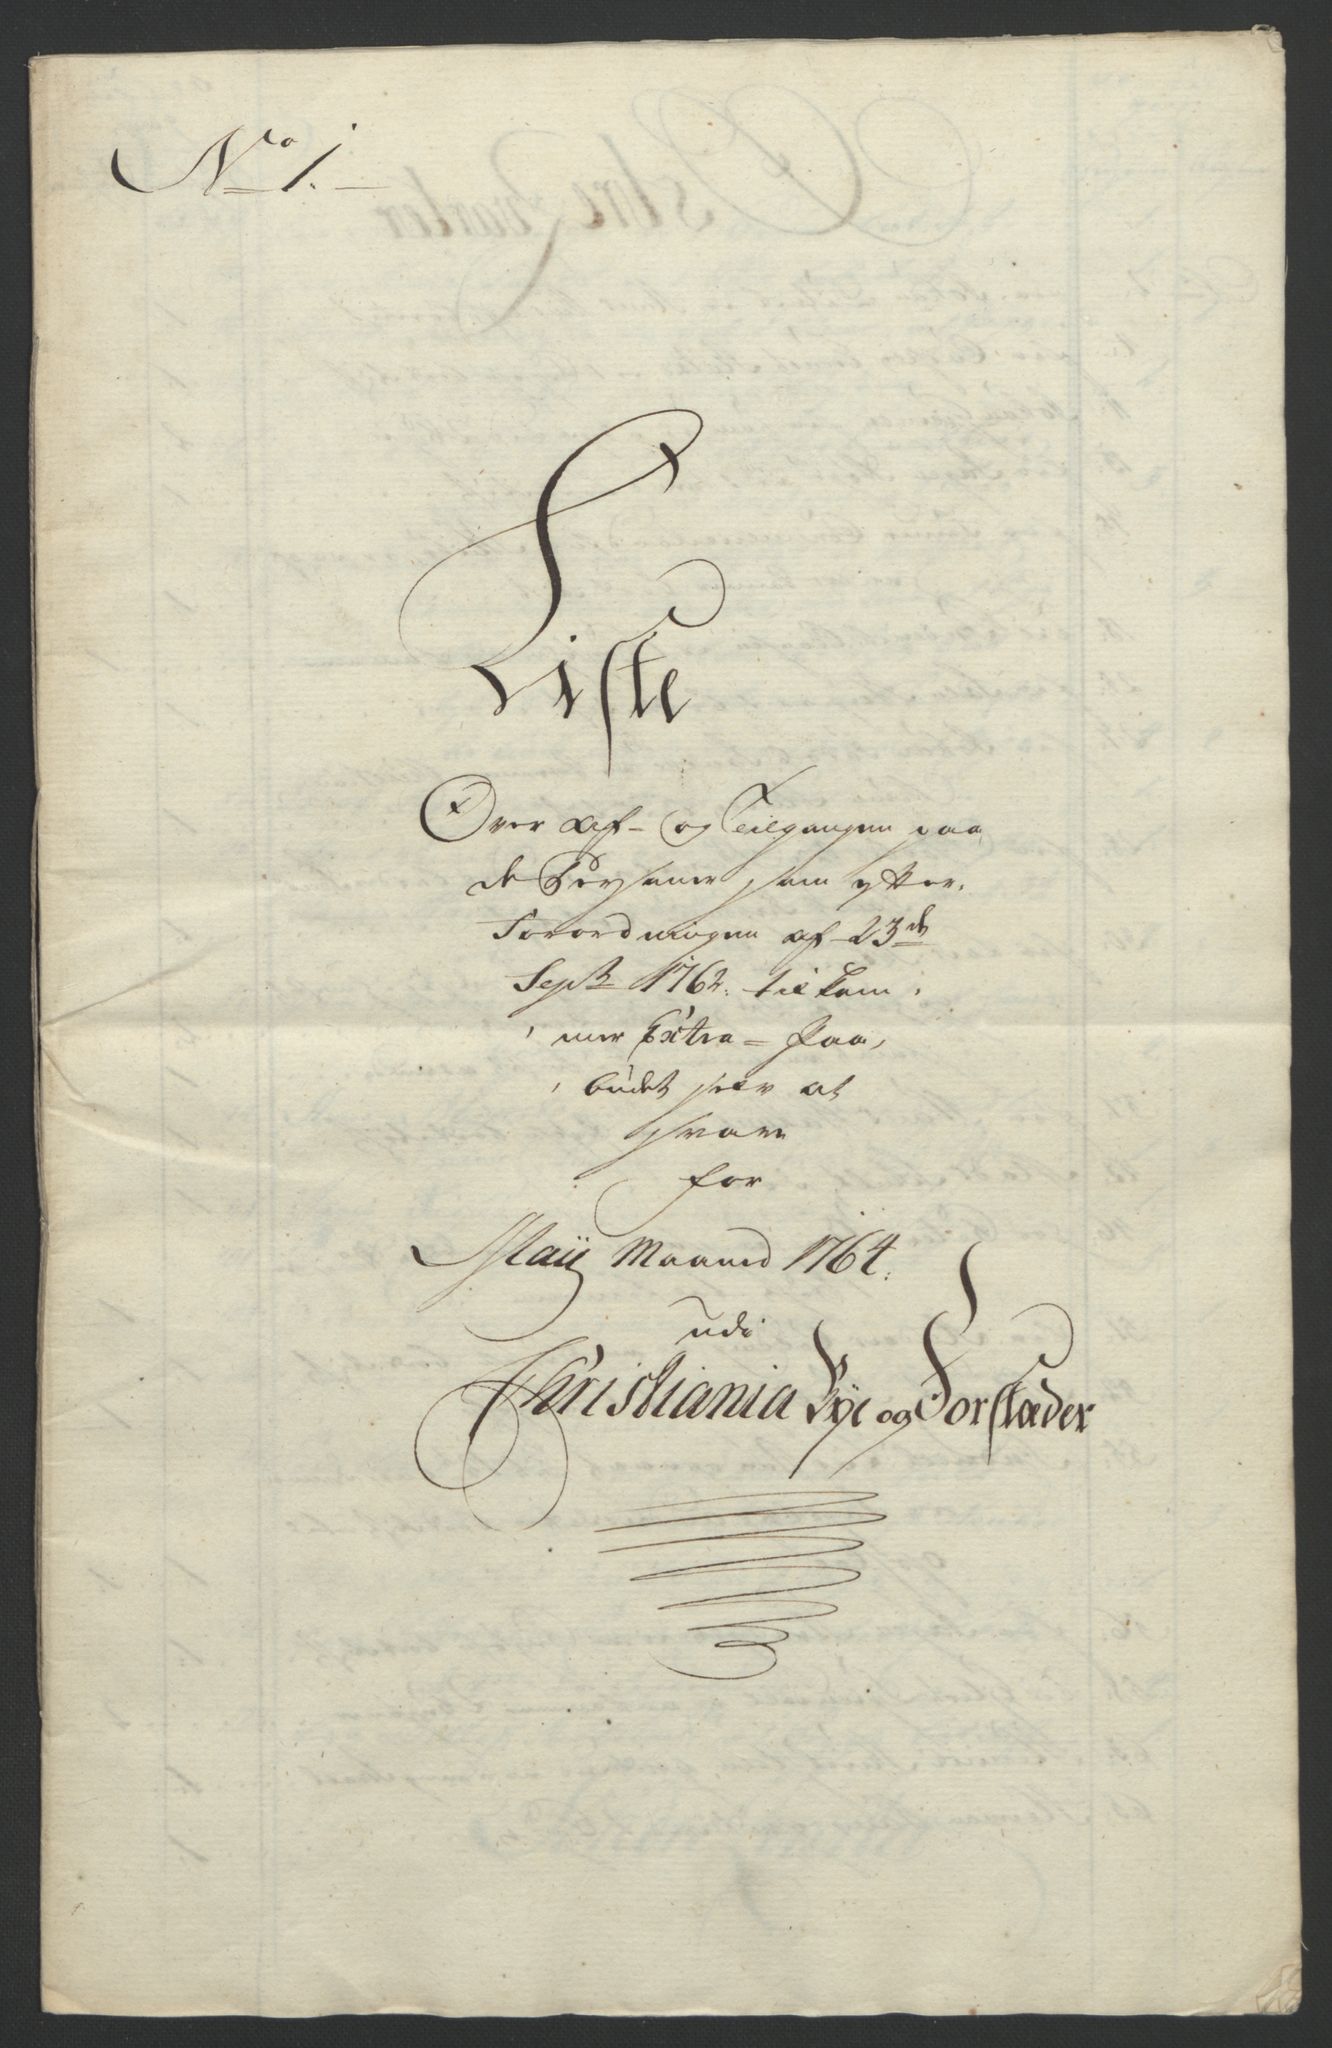 No 1.
Liste
Over Af- og Tilgangen paa
de Persohner som efter
Forordningen af 23de
Septr 1762. tilkom¬
mer Extra-Paa¬
budet selv at
svare
for
Maij Maaned 1764.
udi
Christiania Bÿe og Forstæder